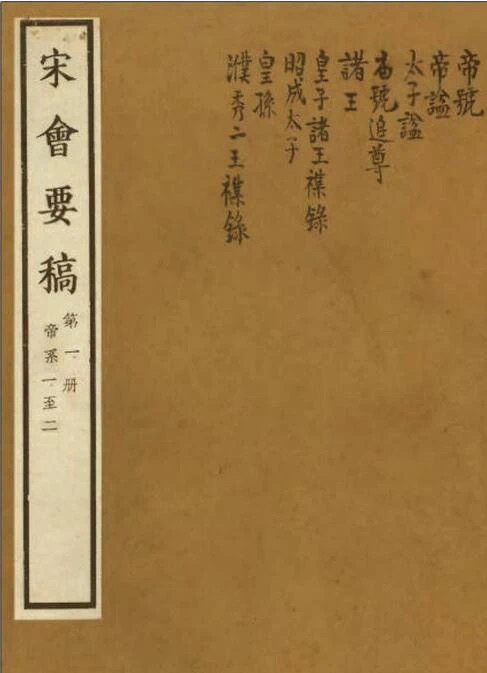 帝號
帝諡
太子諡
廟號追尊
諸王
皇子諸王襍錄
昭成太子
皇孫
濮秀二王襍錄
宋會要稿
第一册
帝系一至二